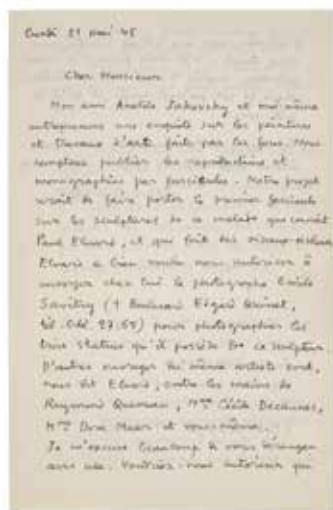 Lundi 21 mai 45
Cher Monsieur
Mon ami Anatole Jakovsky et moi-même
entreprenons une enquête sur les peintures
et travaux d'arts faits par les fous. Nous
comptons publier les reproductions et
monographies par fascicules. Notre projet
serait de faire porter le premier fascicule
sur les sculptures de ce malade que connaît
Paul Eluard, et qui fait des
Eluard a bien voulu nous autoriser à
envoyer chez lui le photographe Emile
Savitry (4 Boulevard Edgard Quinet,
tél. Odé. 27:55) pour photographier les
trois statues qu'il possède de ce sculpteur.
D'autres ouvrages du même artiste sont,
nous dit Eluard, entre les mains de
Raymond Queneau, Mme
Mme Dora Maar et vous-même.
Je m'excuse beaucoup de vous déranger
avec cela. Voudriez-vous autoriser que